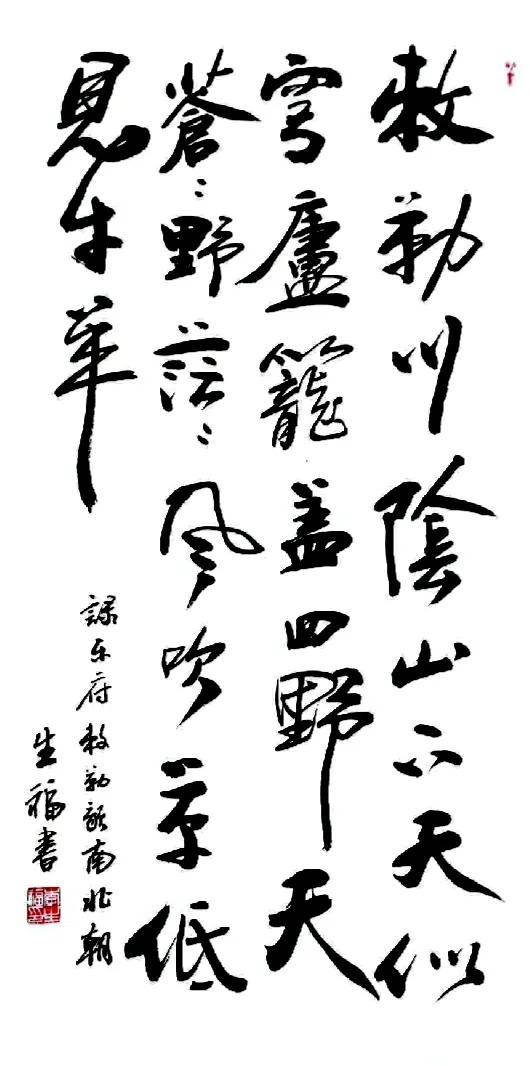 敕勒川陰山下天似
穹廬籠盖四野天
蒼〻野茫〻风吹草低
見牛羊
録乐府敕勒歌南北朝
生福書